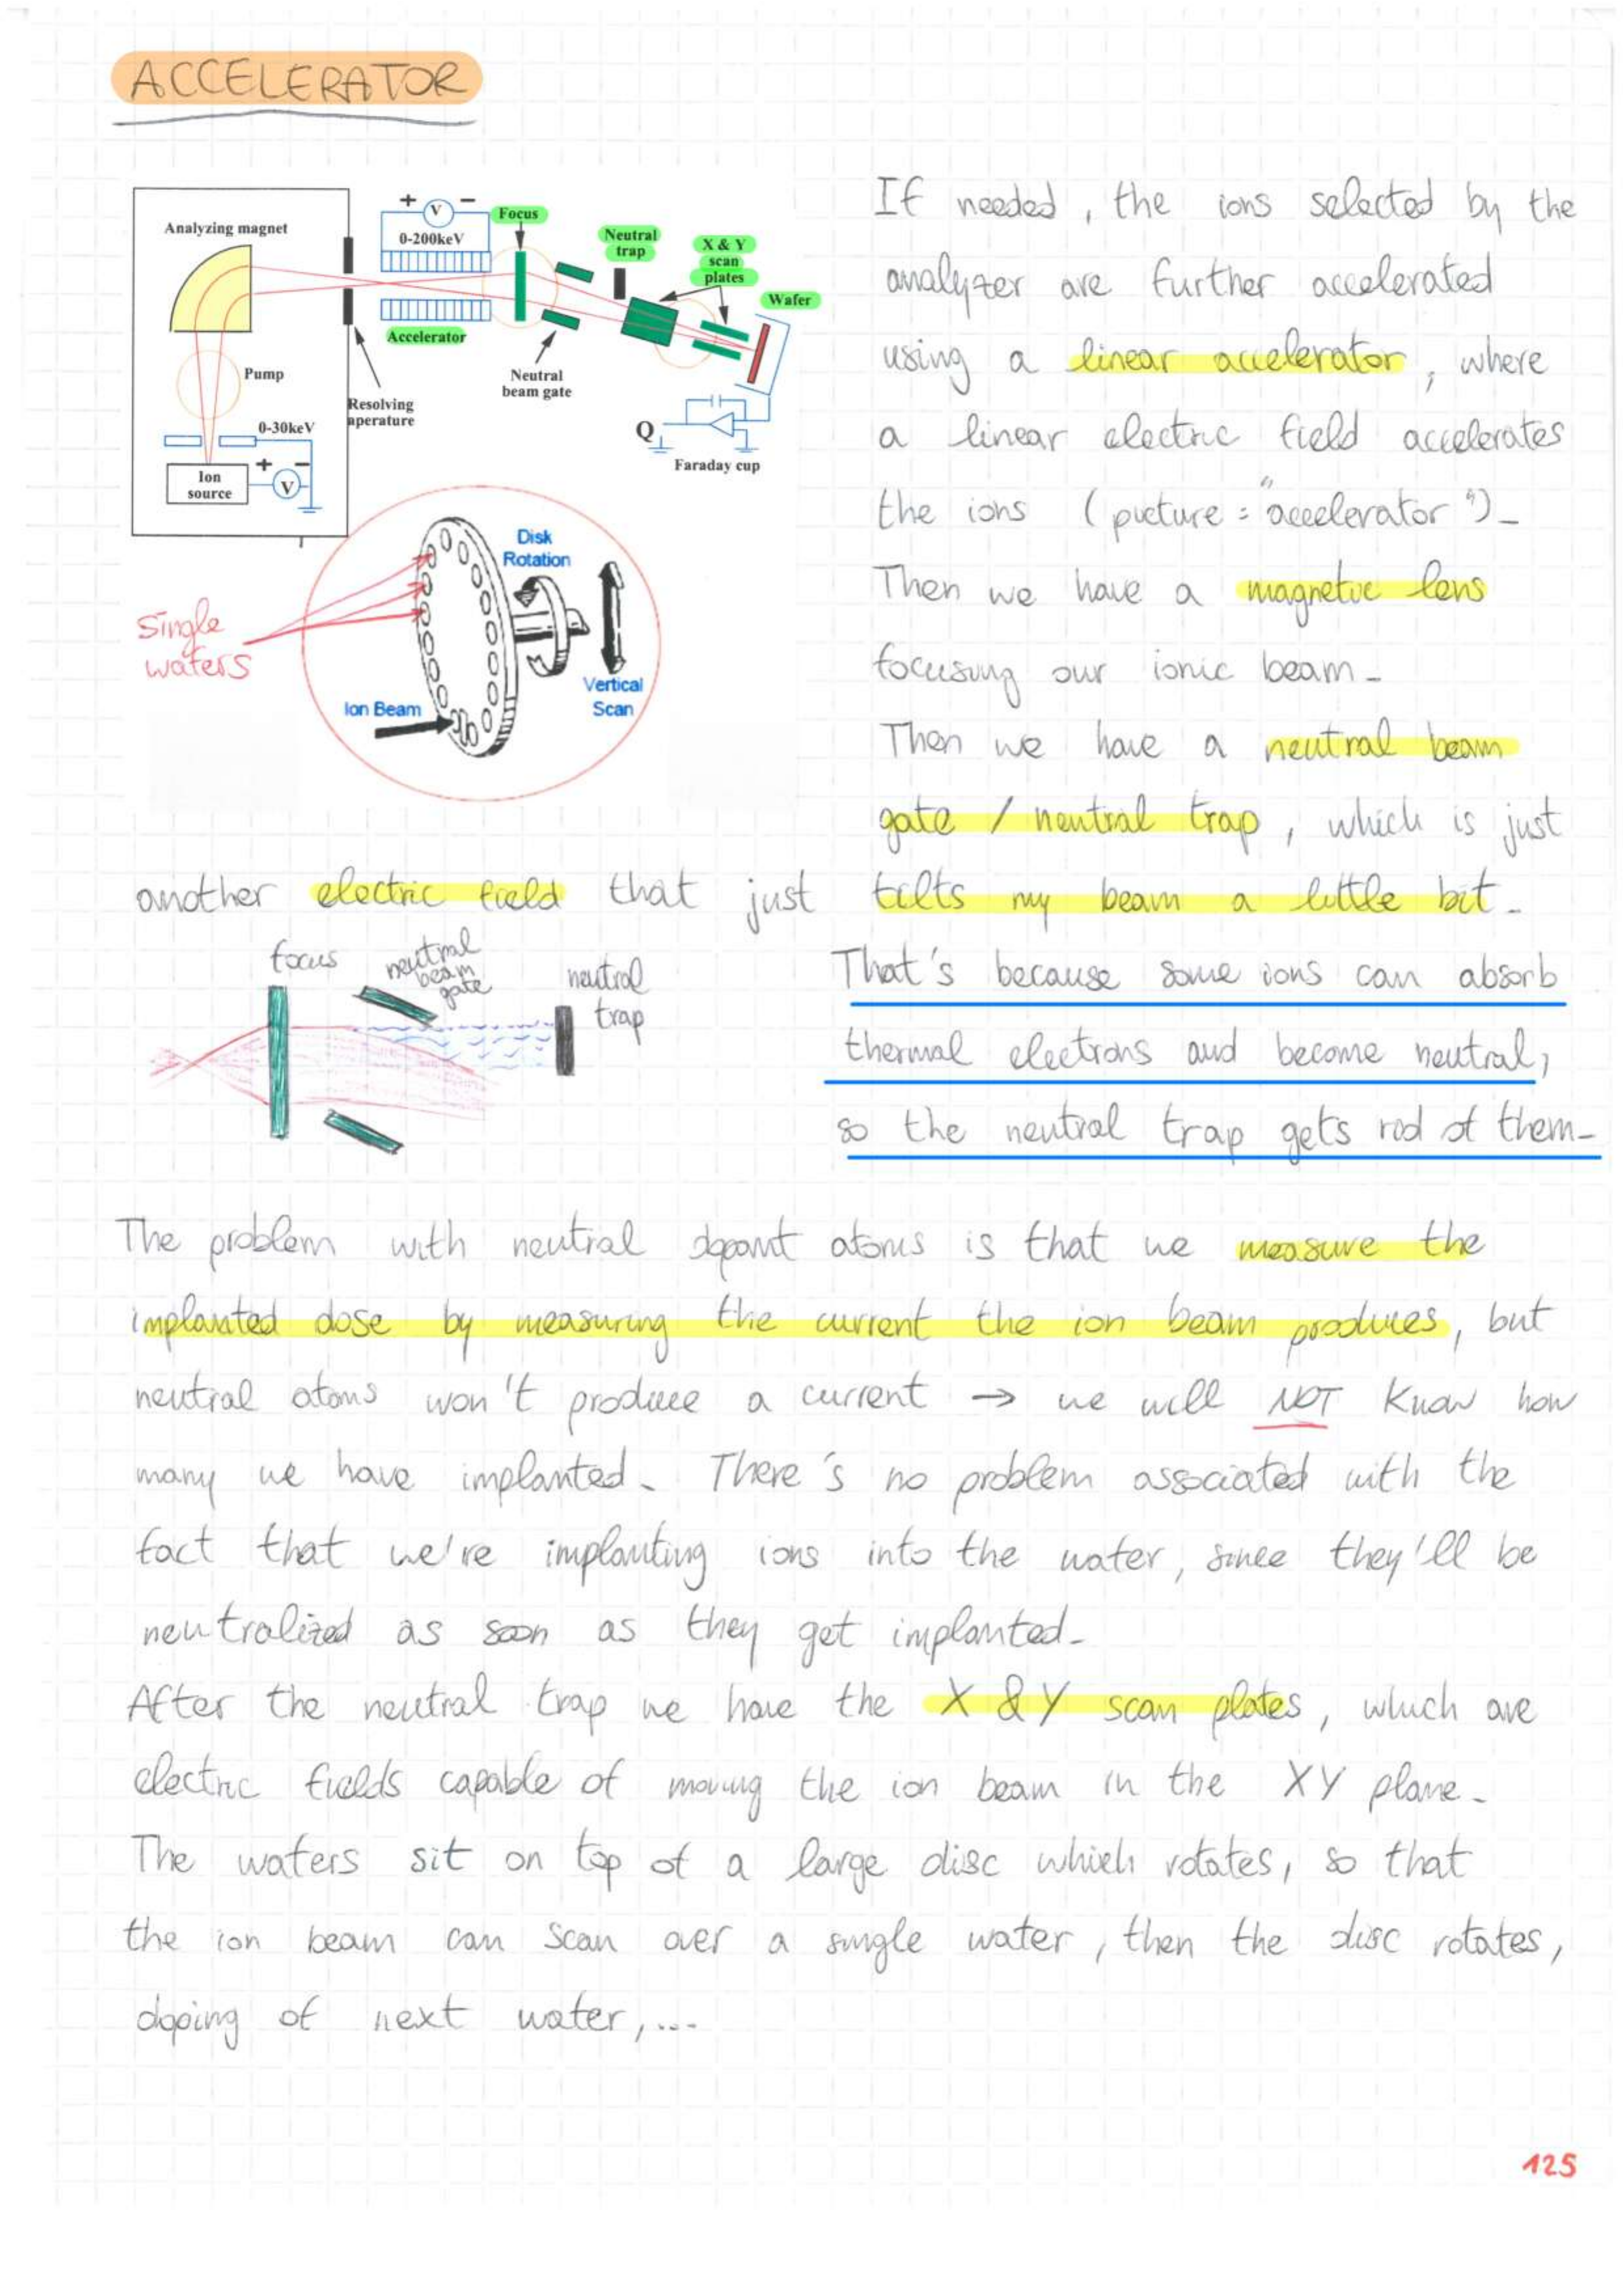 ACCELERATOR
Analyzing magnet
+ V −
0-200keV
Focus
Neutral
trap
X & Y
scan
plates
Wafer
Accelerator
Pump
Neutral
beam gate
Resolving
aperature
0-30keV
Q
Faraday cup
Ion
source
+ −
V
Disk
Rotation
Single
wafers
Vertical
Scan
Ion Beam
If needed, the ions selected by the
analyzer are further accelerated
using a linear accelerator, where
a linear electric field accelerates
the ions (picture = "accelerator").
Then we have a magnetic lens
focusing our ionic beam.
Then we have a neutral beam
gate / neutral trap, which is just
another electric field that just tilts my beam a little bit.
focus
neutral
beam
gate
neutral
trap
That's because some ions can absorb
thermal electrons and become neutral,
so the neutral trap gets rid of them.
The problem with neutral dopant atoms is that we measure the
implanted dose by measuring the current the ion beam produces, but
neutral atoms won't produce a current → we will NOT know how
many we have implanted. There's no problem associated with the
fact that we're implanting ions into the wafer, since they'll be
neutralized as soon as they get implanted.
After the neutral trap we have the X & Y scan plates, which are
electric fields capable of moving the ion beam in the XY plane.
The wafers sit on top of a large disc which rotates, so that
the ion beam can scan over a single wafer, then the disc rotates,
doping of next wafer,...
125